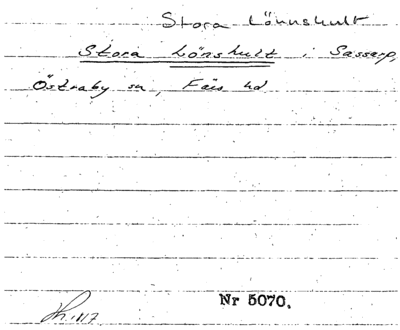 Stora Lönnshult
Stora Lönshult i Sassarp,
Östraby sn, Färs hd
Nr 5070.